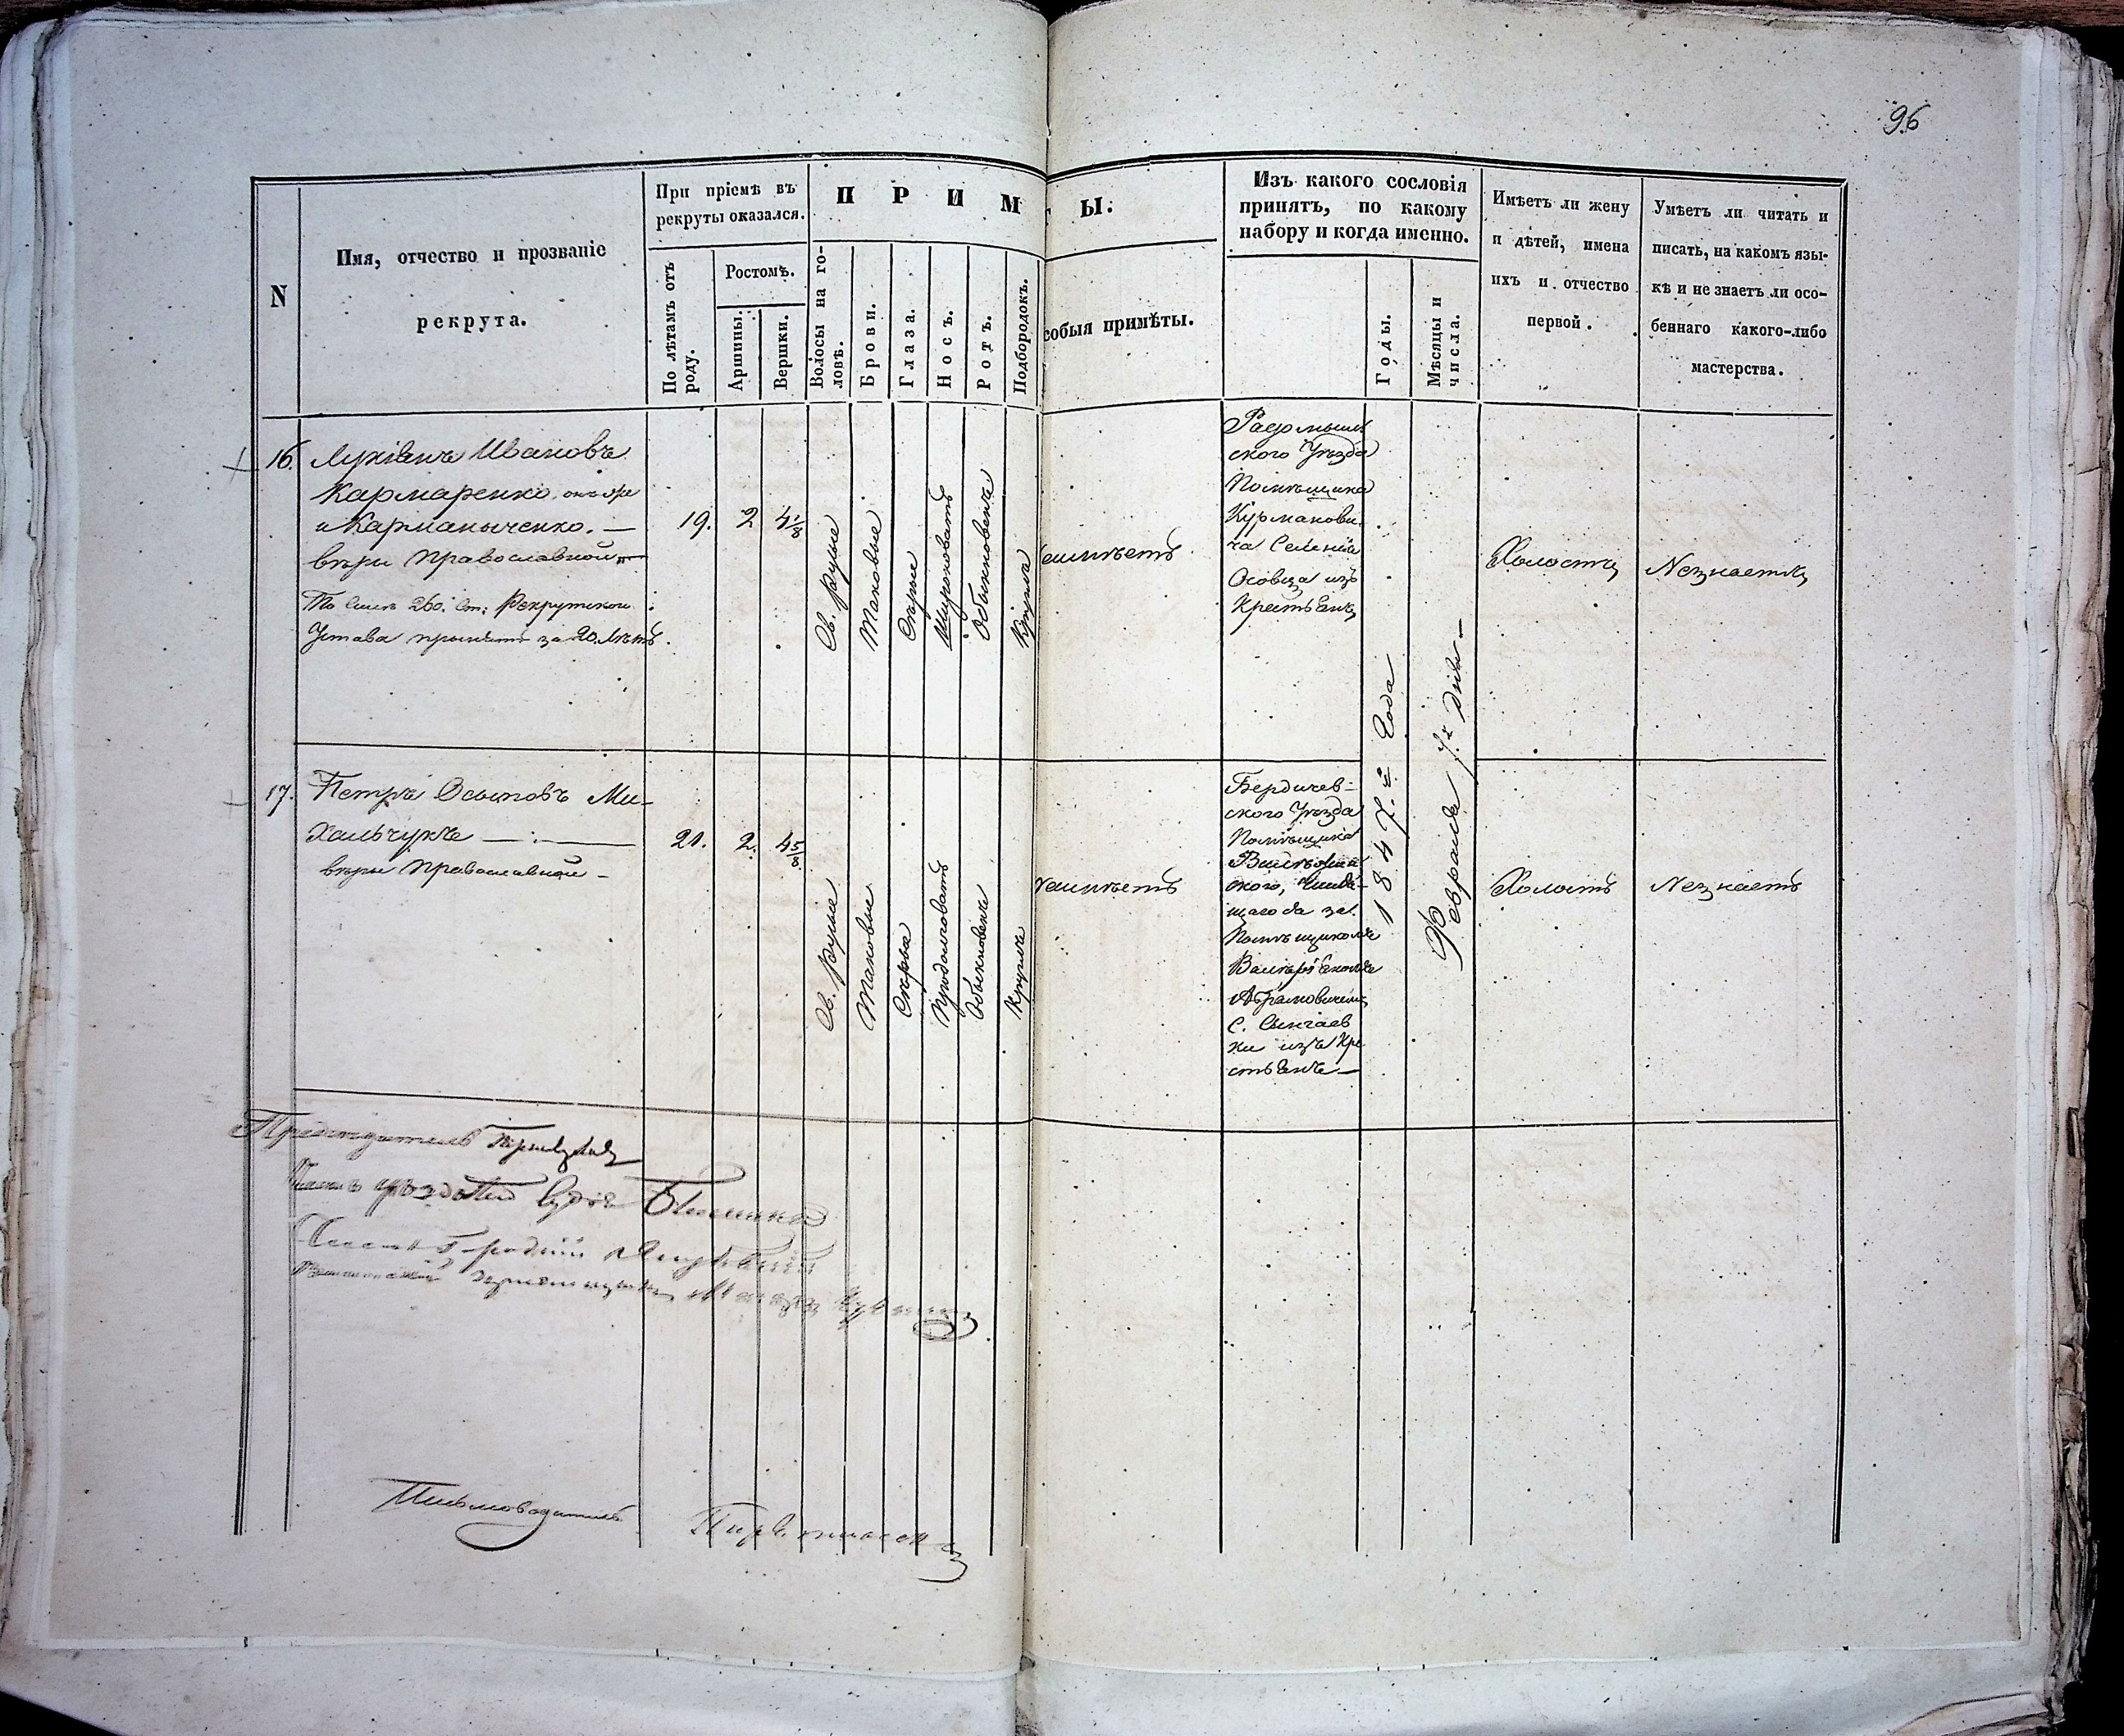 96
N
Имя, отчество и прозваніе
рекрута.
При пріемѣ въ
рекруты оказался.
По лѣтамъ отъ
роду.
Ростомъ.
Аршины.
Вершки.
П Р И М
Ы.
Волосы на го-
ловѣ.
Брови.
Глаза.
Носъ.
Ротъ.
Подбородокъ.
собыя примѣты.
Изъ какого сословія
принятъ, по какому
набору и когда именно.
Годы.
Мѣсяцы и
числа.
Имѣетъ ли жену
и дѣтей, имена
ихъ и отчество
первой.
Умѣетъ ли читать и
писать, на какомъ язы-
кѣ и не знаетъ ли осо-
беннаго какого-либо
мастерства.
16.
Лукіянъ Ивановъ
Кармаренко, онъ же
и Карманыченко. —
вѣры Православной
По силѣ 260. ст: Рекрутскои
Устава принятъ за 20. Лѣтъ.
19.
2
4 1/8
Св. Русые
Таковые
Сѣрые
Широковатъ
Обыкновенъ
Круглъ
еимѣетъ
Радомысл
ского Уѣзда
Помѣщика
Курманови
ча Селенія
Осовца изъ
Крестьянъ
1847.го Года
Февраля 7.го дня —
Холостъ
Незнаетъ
17.
Петръ Осиповъ Ми-
хальчукъ —:—
вѣры Православной —
21.
2.
4 5/8
Св. Русые
Таковые
Сѣрые
Продолговатъ
Обыкновенъ
Круглъ
еимѣетъ
Бердичев-
ского Уѣзда
Помѣщика
ского,
щагося за
Помѣщикомъ
Абрамовичемъ
С.
ки изъ Кре
стьянъ —
Холостъ
Незнаетъ
Предсѣдатель
Письмоводитель